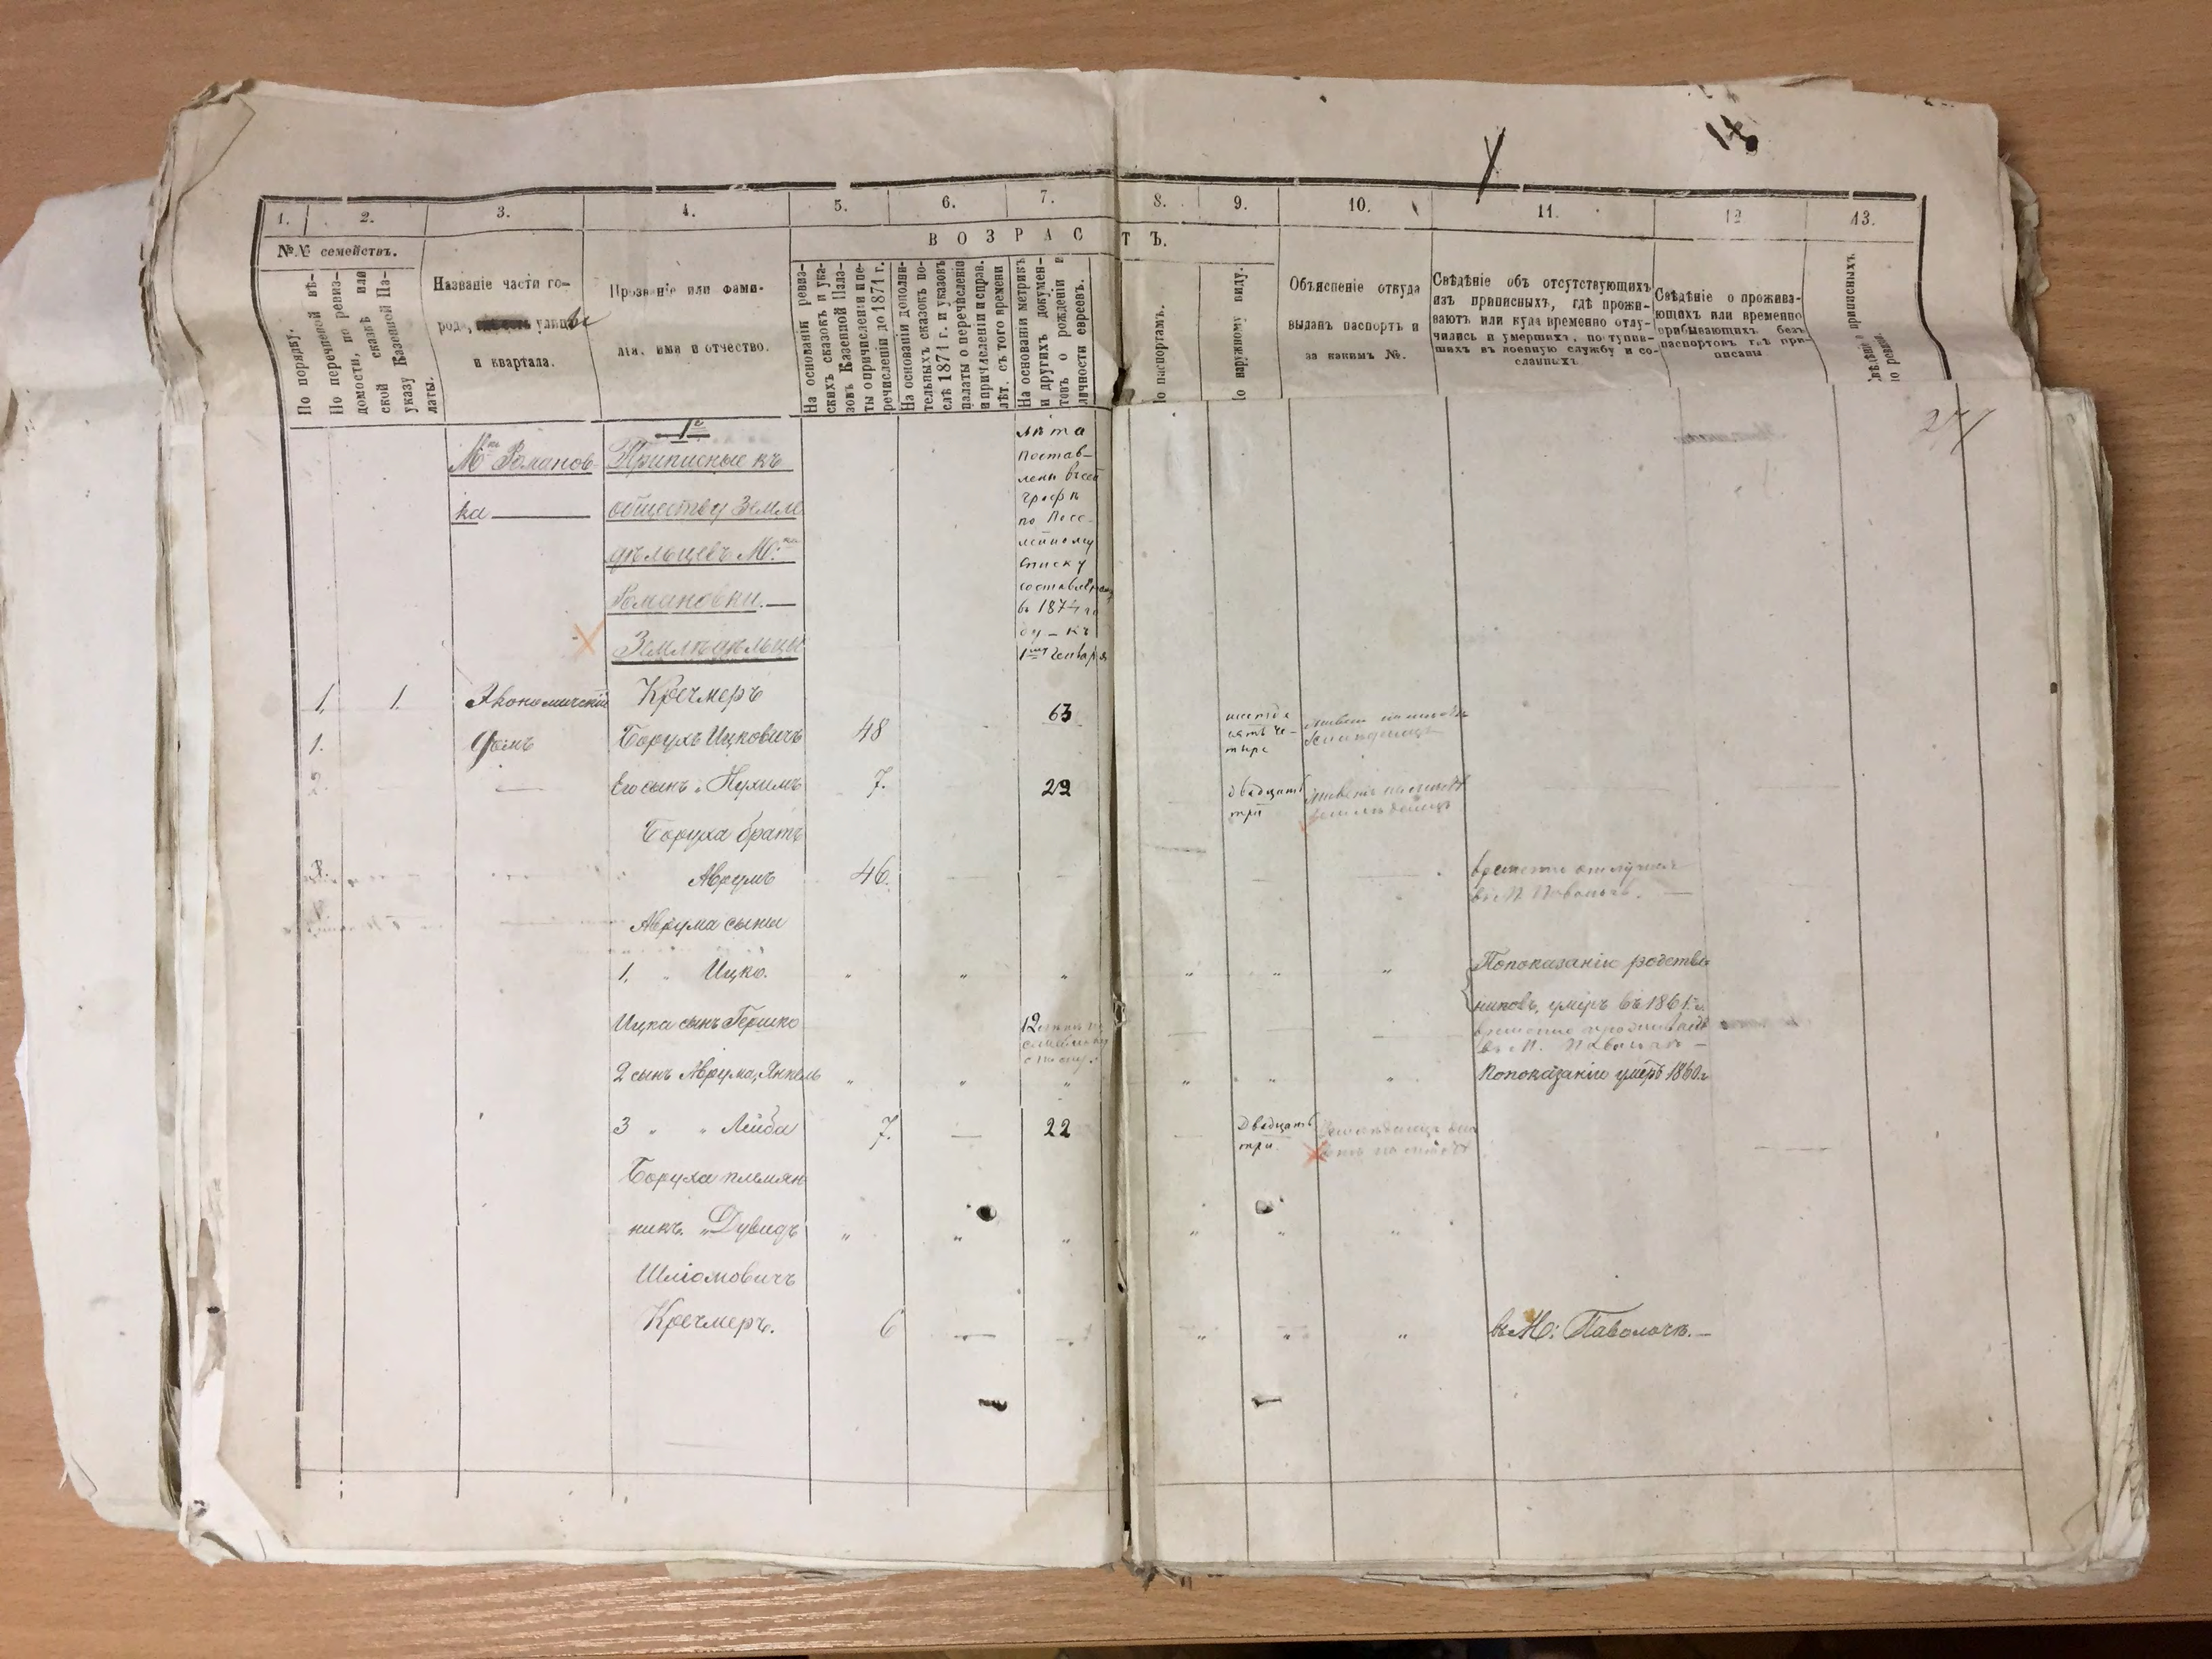 18
1. 2. 3. 4. 5. 6. 7. 8. 9. 10. 11. 12. 13.
№№ семействъ.
В О З Р А С Т Ъ.
По порядку.
По перечневой вѣ-
домости, по ревиз-
ской сказкѣ или
указу Казенной Па-
латы.
Названіе части го-
рода, улицы
и квартала.
Прозваніе или фами-
лія, имя и отчество.
На основаніи ревиз-
скихъ сказокъ и ука-
зовъ Казенной Пала-
ты о причисленіи и пе-
речисленіи до 1871 г.
На основаніи дополни-
тельныхъ сказокъ по-
слѣ 1871 г. и указовъ
палаты о перечисленіи
и причисленіи и справ.
лѣт. съ того времени
На основаніи метрикъ
и другихъ докумен-
товъ о рожденіи и
личности евреевъ.
По паспортамъ.
По наружному виду.
Объясненіе откуда
выданъ паспортъ и
за какимъ №.
Свѣдѣніе объ отсутствующихъ
изъ приписныхъ, гдѣ прожи-
ваютъ или куда временно отлу-
чились и умершихъ, поступив-
шихъ въ военную службу и со-
сланныхъ.
Свѣдѣніе о прожива-
ющихъ или временно
прибывающихъ безъ
паспортовъ гдѣ при-
писаны
Свѣдѣніе о приписныхъ
по ревиз.
М:ко Романов-
ка
Приписные къ
обществу Земле
дѣльцевъ М:ка
Романовки.
Земледѣльцы
лѣта
постав-
лены въ сей
графѣ
по Посе-
мейному
списку
составленному
въ 1874 го
ду – къ
1му Генваря
1. 1. Экономическій Кречмеръ 63
1. домъ Борухъ Ицковичъ 48 шестьде
сятъ че-
тыре
2. Его сынъ Нухимъ 7. 29 двадцать
три
Боруха братъ
Аврумъ 46. временно отлучился
въ М. Паволочъ.
Аврума сыны
1. „ Ицко. „ „ „ „ „ „ По показанію родствен
никовъ, умеръ въ 1861 г.
Ицка сынъ Гершко 12 временно проживаетъ
въ М. Паволочѣ –
2 сынъ Аврума, Янкель „ „ „ „ „ „ По показанію умеръ 1860 г.
3 „ „ Лейба 7. 22 Двадцать
три.
Боруха племян
никъ. „Дувидъ „ „ „ „ „ „
Шліомовичъ
Кречмеръ. 6 „ „ „ въ М: Паволочѣ. –